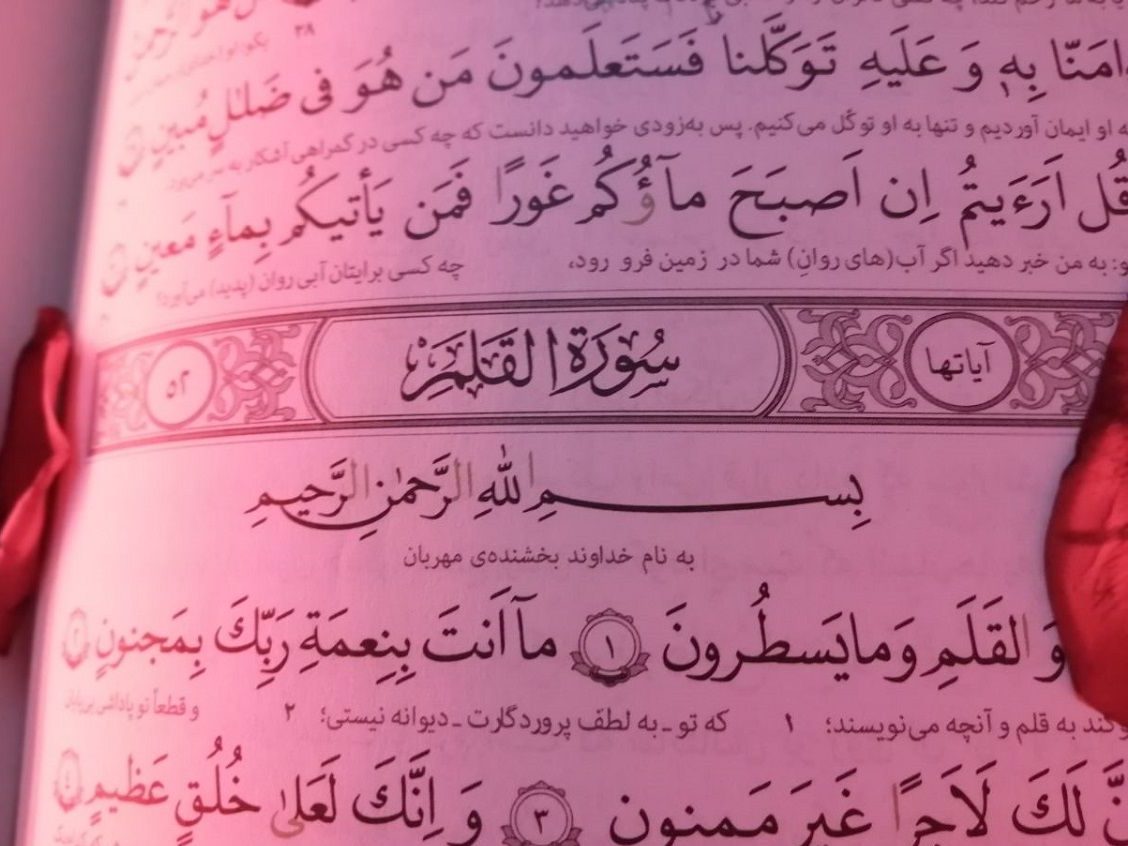 ءامَنّا بِهِ وَ عَلَيهِ تَوَكَّلنا فَسَتَعلَمونَ مَن هُوَ فى ضَلٰلٍ مُبينٍ
به او ایمان آوردیم و تنها به او توکّل می‌کنیم. پس به‌زودی خواهید دانست که چه کسی در گمراهی آشکار به سر می‌برد.
قُل اَرَءَيتُم اِن اَصبَحَ ماۤؤُكُم غَورًا فَمَن يَأتيكُم بِماۤءٍ مَعينٍ
به من خبر دهید اگر آب(های روانِ) شما در زمین فرو رود، چه کسی برایتان آبی روان (پدید) می‌آورد؟
آیاتها سُورَةُ القَلَمِ ٥٢
بِسمِ اللهِ الرَّحمٰنِ الرَّحيمِ
به نام خداوند بخشنده‌ی مهربان
وَ القَلَمِ وَ ما يَسطُرونَ ١ ماۤ اَنتَ بِنِعمَةِ رَبِّكَ بِمَجنونٍ ٢
به قلم و آنچه می‌نویسند؛ ١ که تو ـ به لطف پروردگارت ـ دیوانه نیستی؛ ٢ و قطعاً تو پاداشی بی‌پایان
لَكَ لَاَجرًا غَيرَ مَمنونٍ ٣ وَ اِنَّكَ لَعَلىٰ خُلُقٍ عَظيمٍ ٤